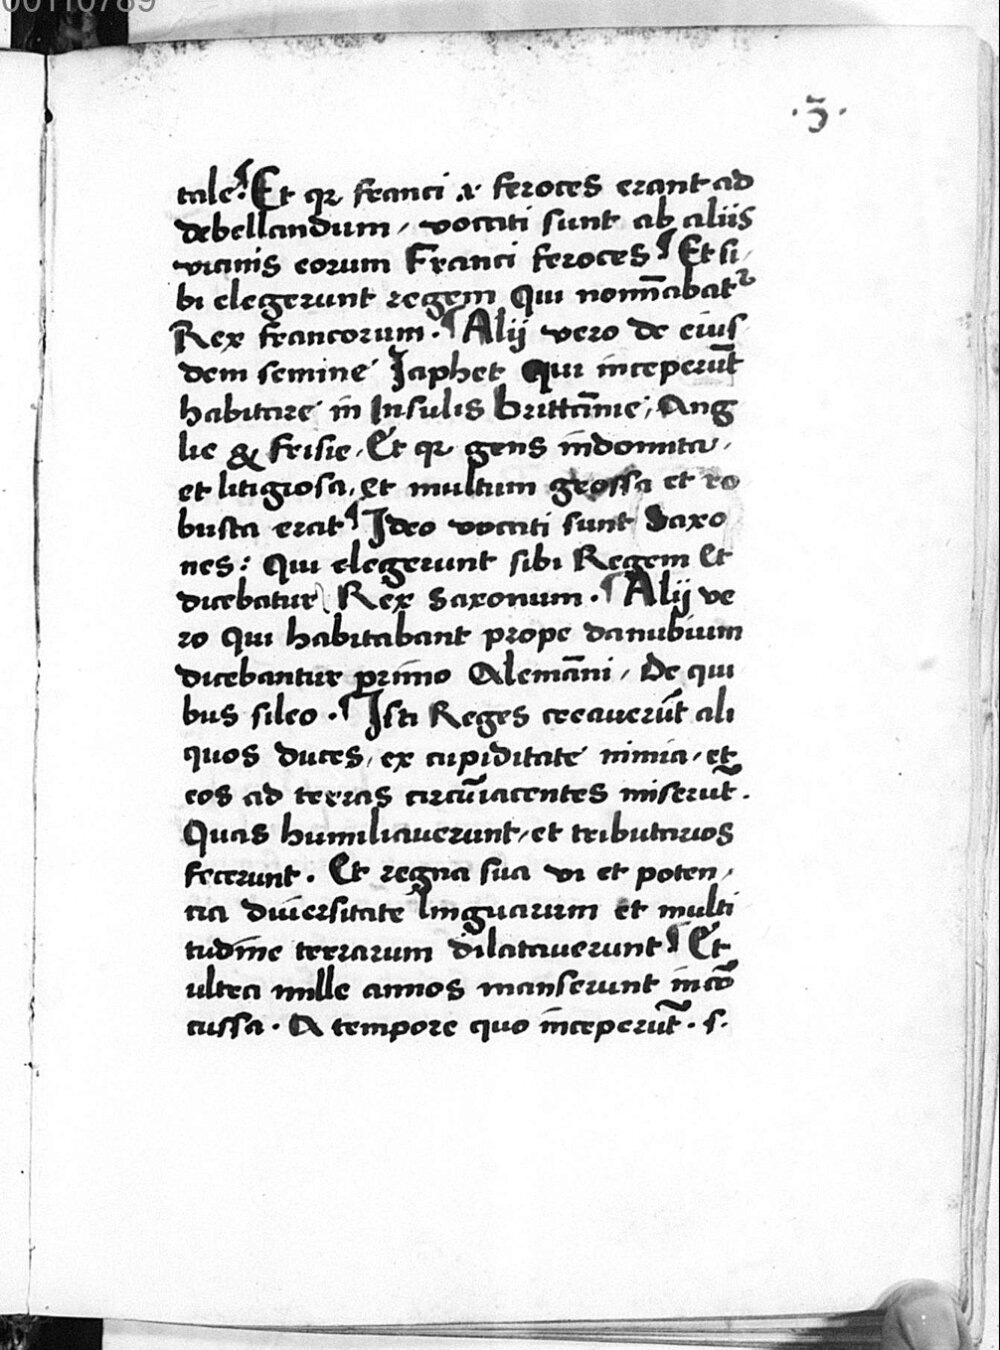 00110789
·3̃·
tale. ¶ Et qꝛ franci ⁊ feroces erant ad
debellandum / vocati sunt ab aliis
vicinis eorum Franci feroces ¶ Et si /
bi elegerunt regem Qui nom̄abatᷣ
Rex francorum · ¶ Alij vero de eius
dem semine Japhet qui inceperūt
habitare in Insulis brittānie, Ang
lie & frisie, Et qꝛ gens indomita,
et litigiosa, et multum grossa et ro
busta erat ¶ Ideo vocati sunt Saxo
nes: Qui elegerunt sibi Regem Et
dicebatur Rex Saxonum · ¶ Alij ve
ro Qui habitabant prope danubium
dicebantur primo Alemāni / De qui
bus sileo · ¶ Isti Reges creauerūt ali
quos duces, ex cupiditate nimia, et
eos ad terras circūiacentes miserūt.
Quas humiliauerunt, et tributarios
fecerunt. Et regna sua vi et poten /
cia diuersitate linguarum et multi
tudine terrarum dilatauerunt ¶ Et
ultra mille annos manserunt incō
cussa · A tempore quo inceperūt · s·